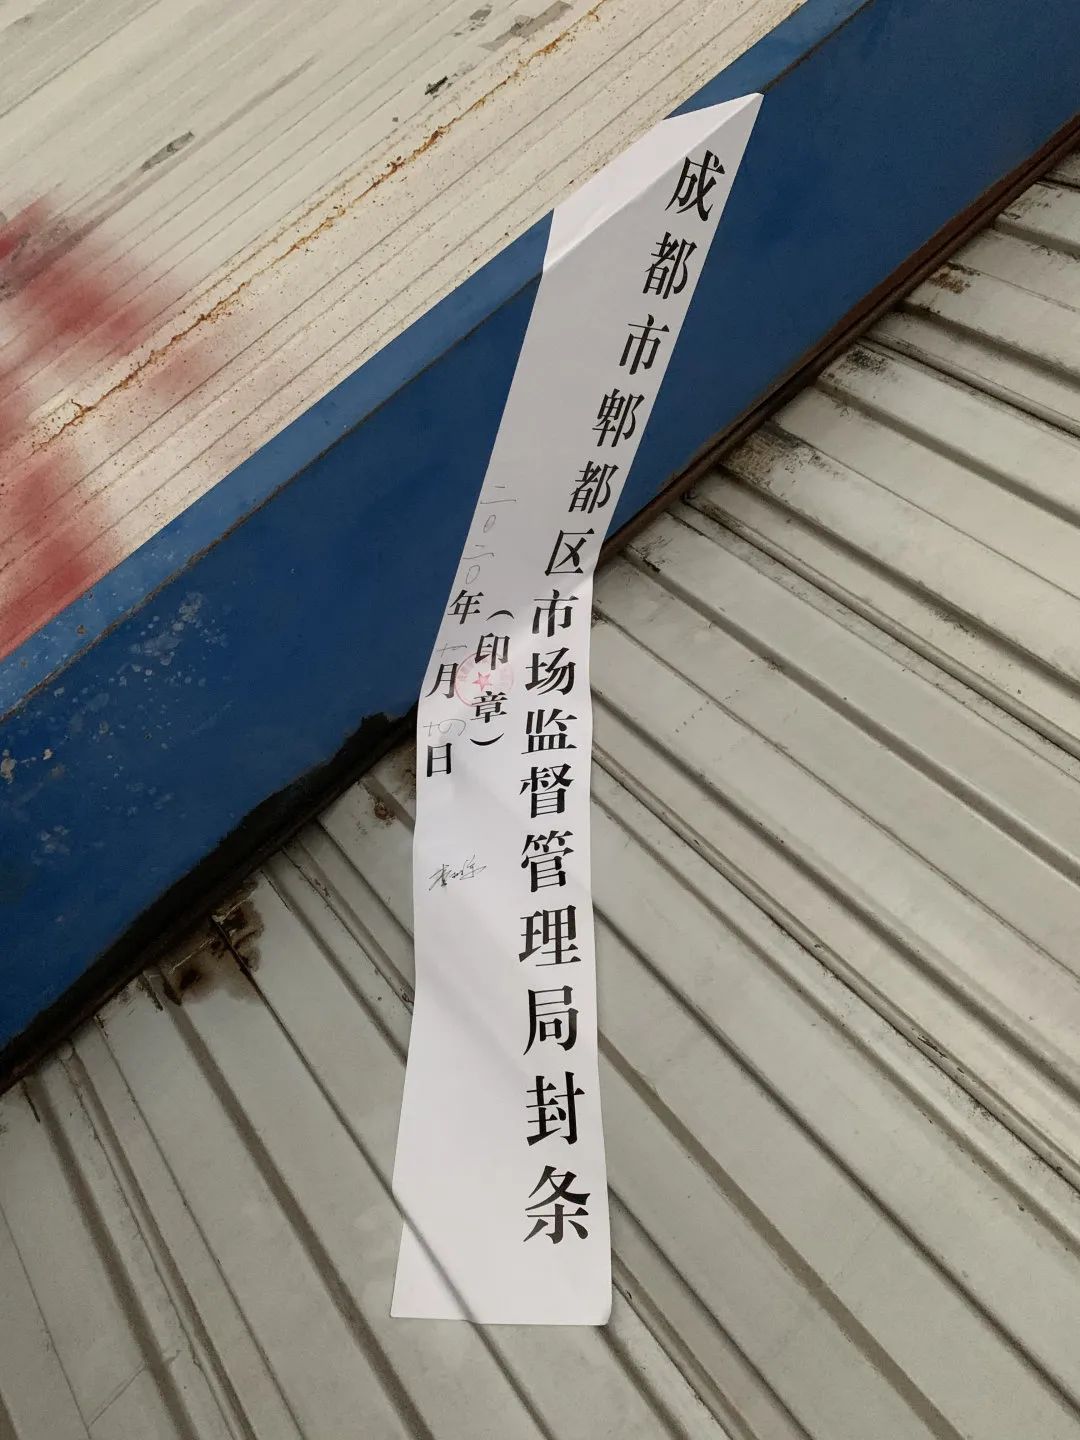 成都市郫都区市场监督管理局封条
（印章）
二〇二〇年十月十四日